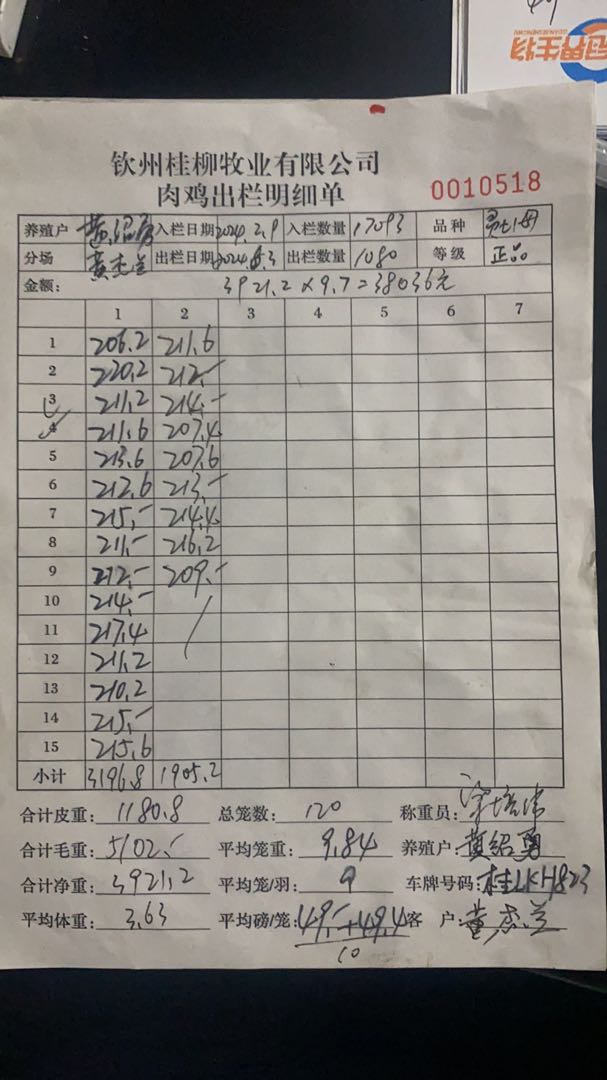 冠界生物
钦州桂柳牧业有限公司
肉鸡出栏明细单
0010518
养殖户 黄绍勇 入栏日期 2024.2.9 入栏数量 17093 品种
分场 黄杰兰 出栏日期 出栏数量 1080 等级 正品
金额: 3921.2×9.7=38036元
1 2 3 4 5 6 7
1 206.2 211.6
2 220.2 212.-
3 211.2 214.-
4 211.6 207.4
5 213.6 207.6
6 212.6 213.-
7 215.- 214.4
8 211.- 216.2
9 212.- 209.-
10 214.-
11 217.4
12 211.2
13 210.2
14 215.-
15 215.6
小计 3196.8 1905.2
合计皮重: 1180.8 总笼数: 120 称重员:
合计毛重: 5102.- 平均笼重: 9.84 养殖户: 黄绍勇
合计净重: 3921.2 平均笼/羽: 9 车牌号码: 桂LKH823
平均体重: 3.63 平均磅/笼: 49.-+49.4 客 户: 黄杰兰
10